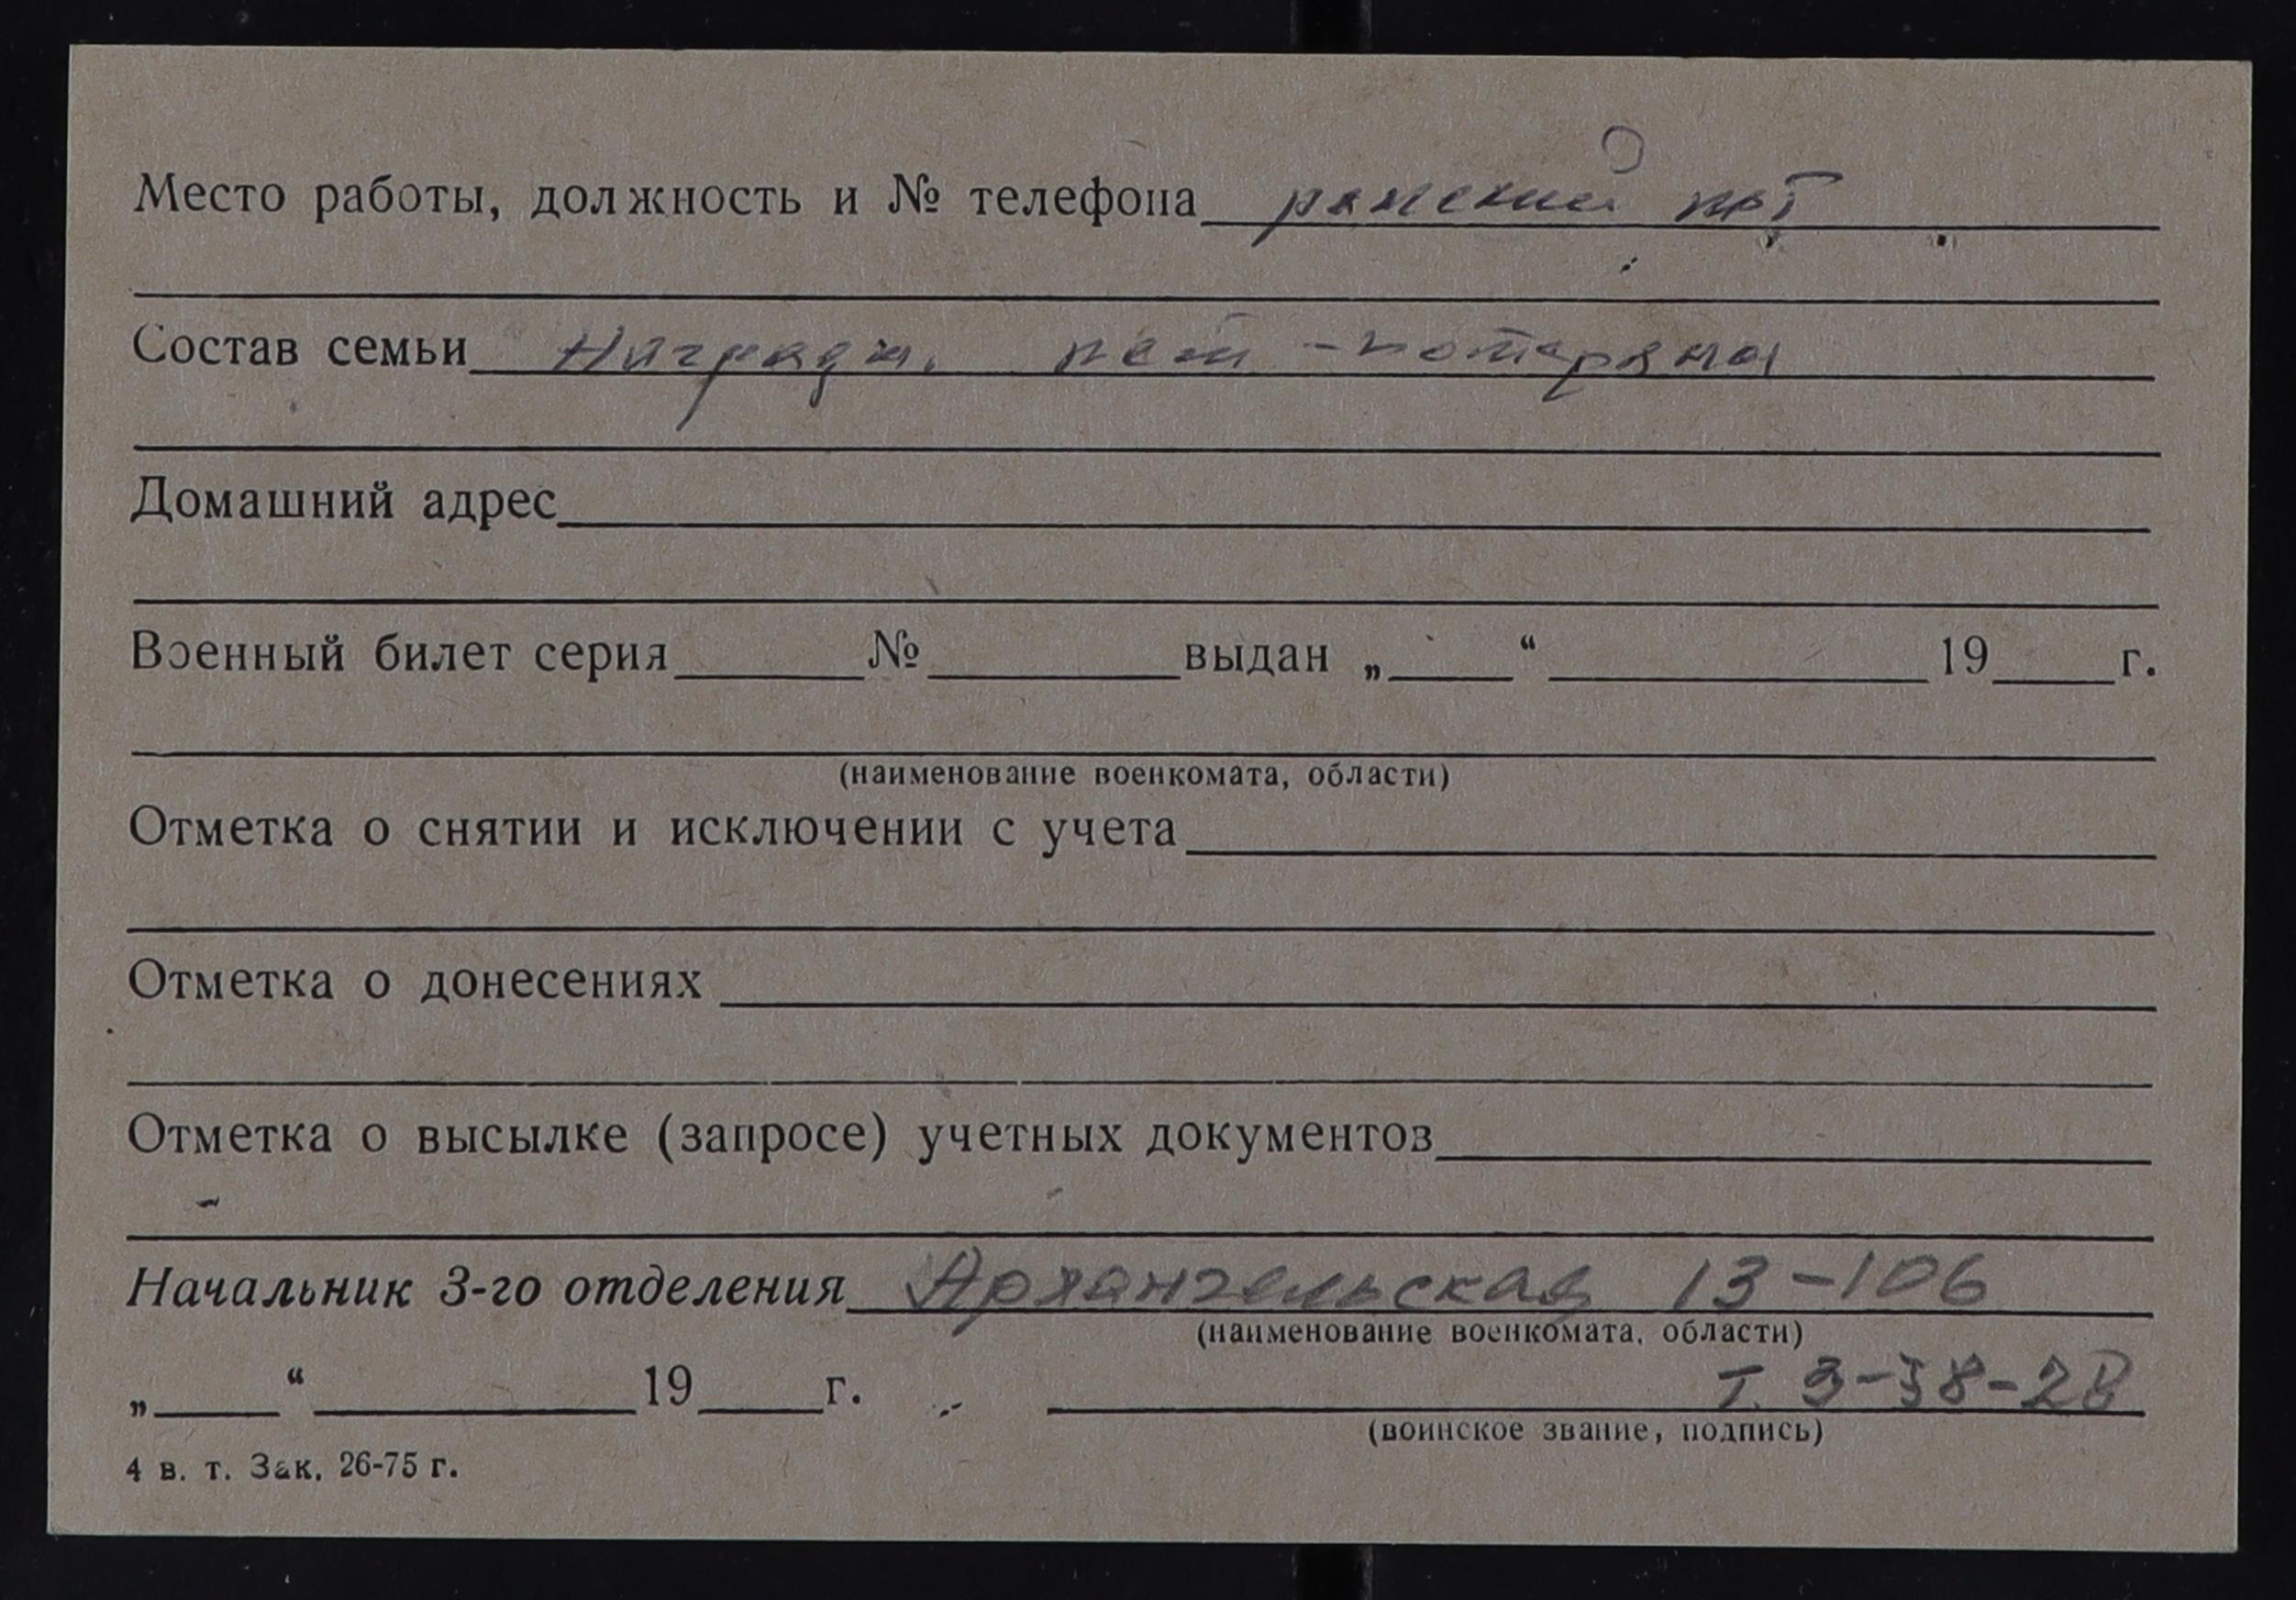 Место работы, должность и № телефона ранений нет
Состав семьи Награды нет - потеряны
Домашний адрес
Военный билет серия № выдан „ “ 19 г.
(наименование военкомата, области)
Отметка о снятии и исключении с учета
Отметка о донесениях
Отметка о высылке (запросе) учетных документов
Начальник 3-го отделения Архангельская 13-106
(наименование военкомата, области)
„ “ 19 г. т. 3-38-28
(воинское звание, подпись)
4 в. т. Зак. 26-75 г.